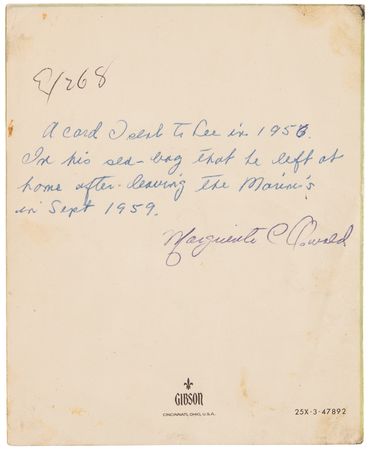 A card I sent to Lee in 1956.
In his sea-bag that he left at
home after leaving the Marine's
in Sept 1959.
Marguerite C Oswald
GIBSON
CINCINNATI, OHIO, U.S.A.
25X-3-47892